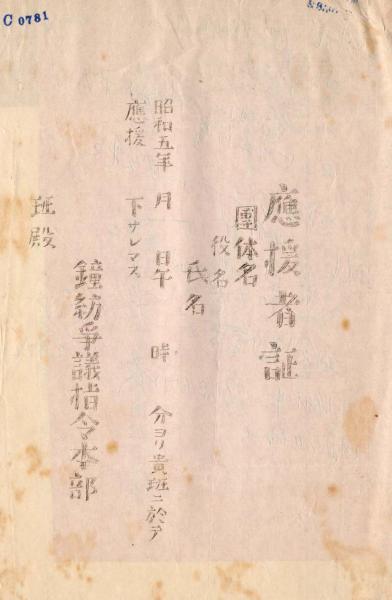 C 0781
應援者証
團体名
役名
氏名
昭和五年 月 日午 時 分ヨリ貴班ニ於テ
應援 下サレマス
鐘紡爭議指令本部
班殿